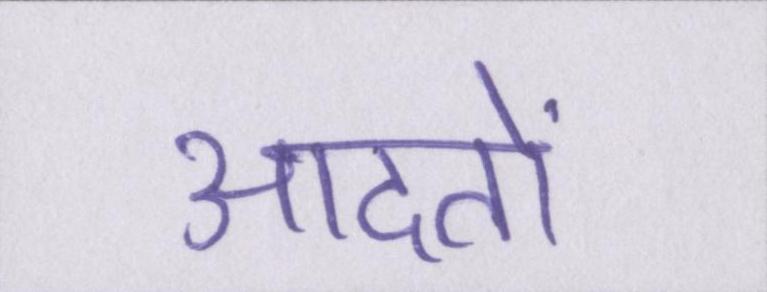 आदतों